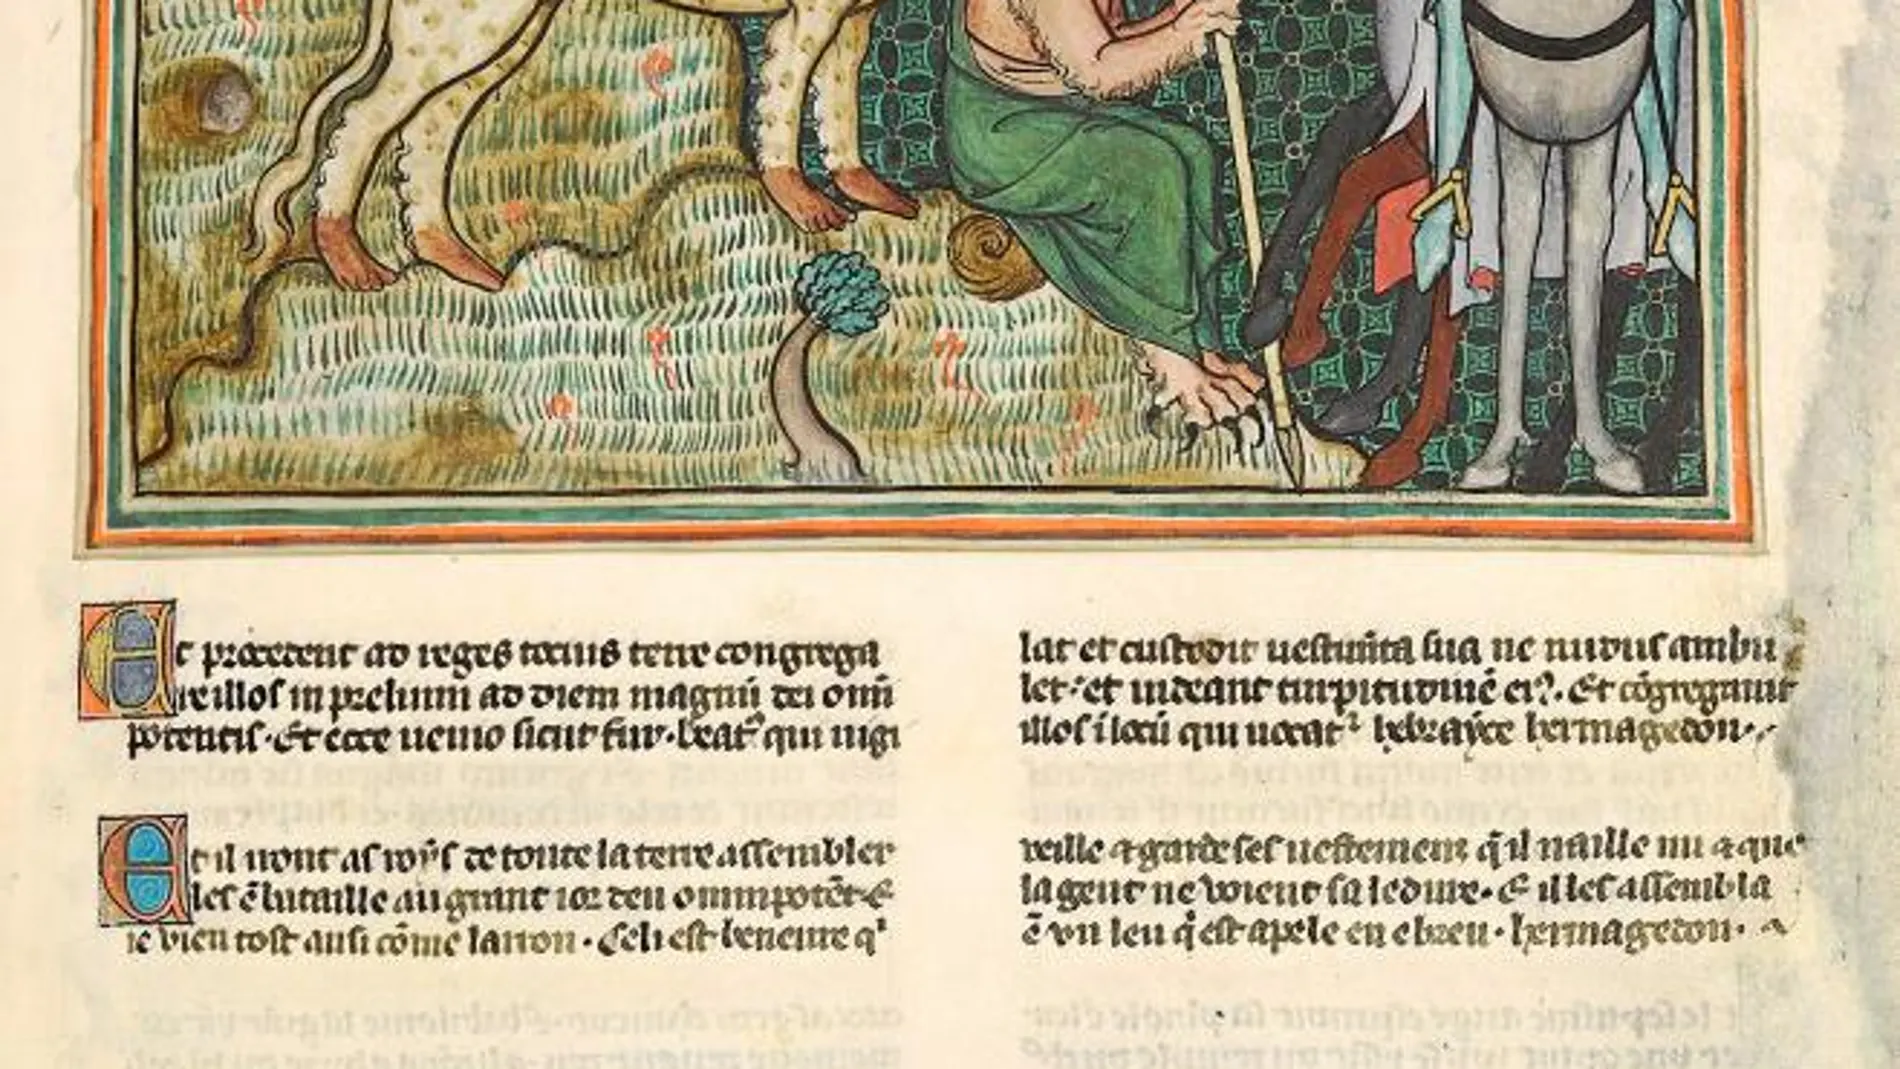 Et procedent ad reges tocius terre congrega
re illos in prelium ad diem magnū dei om̄i
potentis. Et ecce uenio sicut fur. beatꝰ qui uigi
lat et custodit uestim̄ta sua ne nudus ambu
let. et uideant turpitudinē eiꝰ. Et cōgregauit
illos ī locū qui uocatᷣ hebrayce hermagedon.
Et il uont as roys de toute la terre assembler
les ē bataille au grant ior deu omnipotēt. E
ie vien tost ausi cōme larron. Celi est beneure qⁱ
veille & garde ses uestemenz q̄ il naille nu & que
la gent ne voient sa ledure. E il les assembla
ē vn leu q̄ est apele en ebreu. hermagedon.